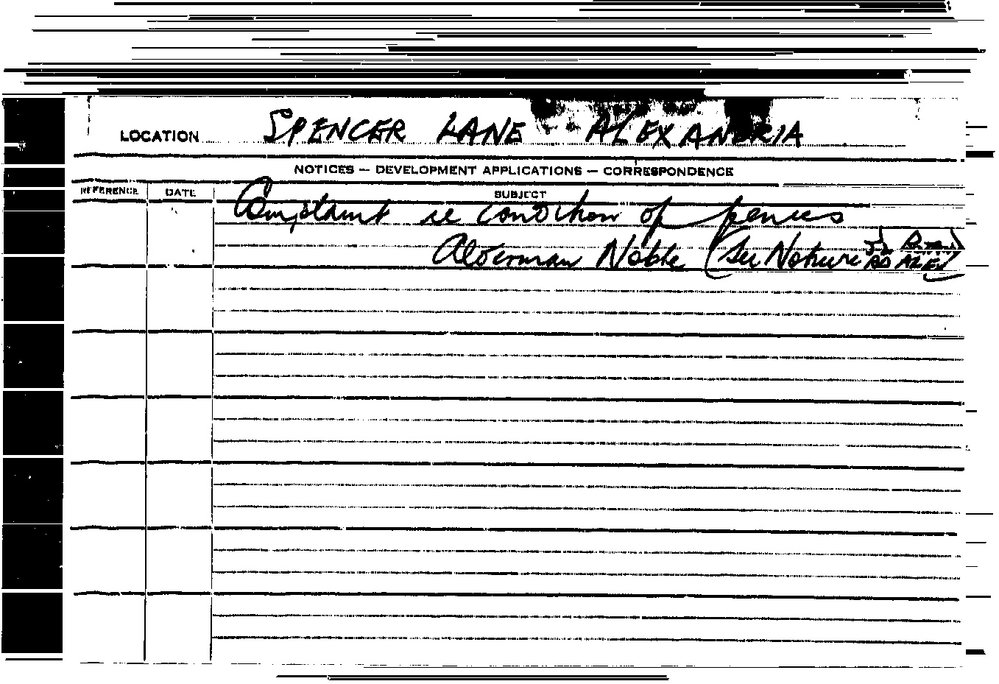 LOCATION SPENCER LANE - ALEXANDRIA
NOTICES — DEVELOPMENT APPLICATIONS — CORRESPONDENCE
REFERENCE DATE SUBJECT
Complaint re condition of fences
Alderman Noble (See